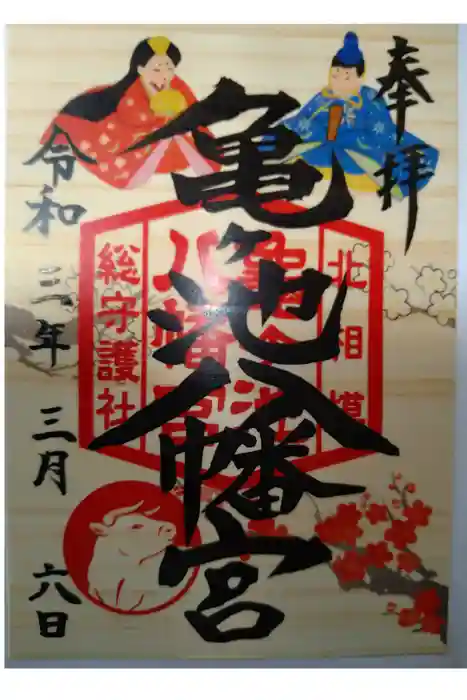 奉拝
亀ヶ池八幡宮
北相模
亀ヶ池
八幡宮
総守護社
令和三年三月六日